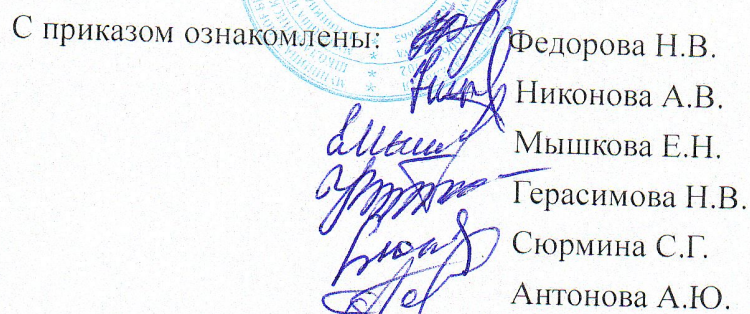 С приказом ознакомлены: Федорова Н.В.
Никонова А.В.
Мышкова Е.Н.
Герасимова Н.В.
Сюрмина С.Г.
Антонова А.Ю.